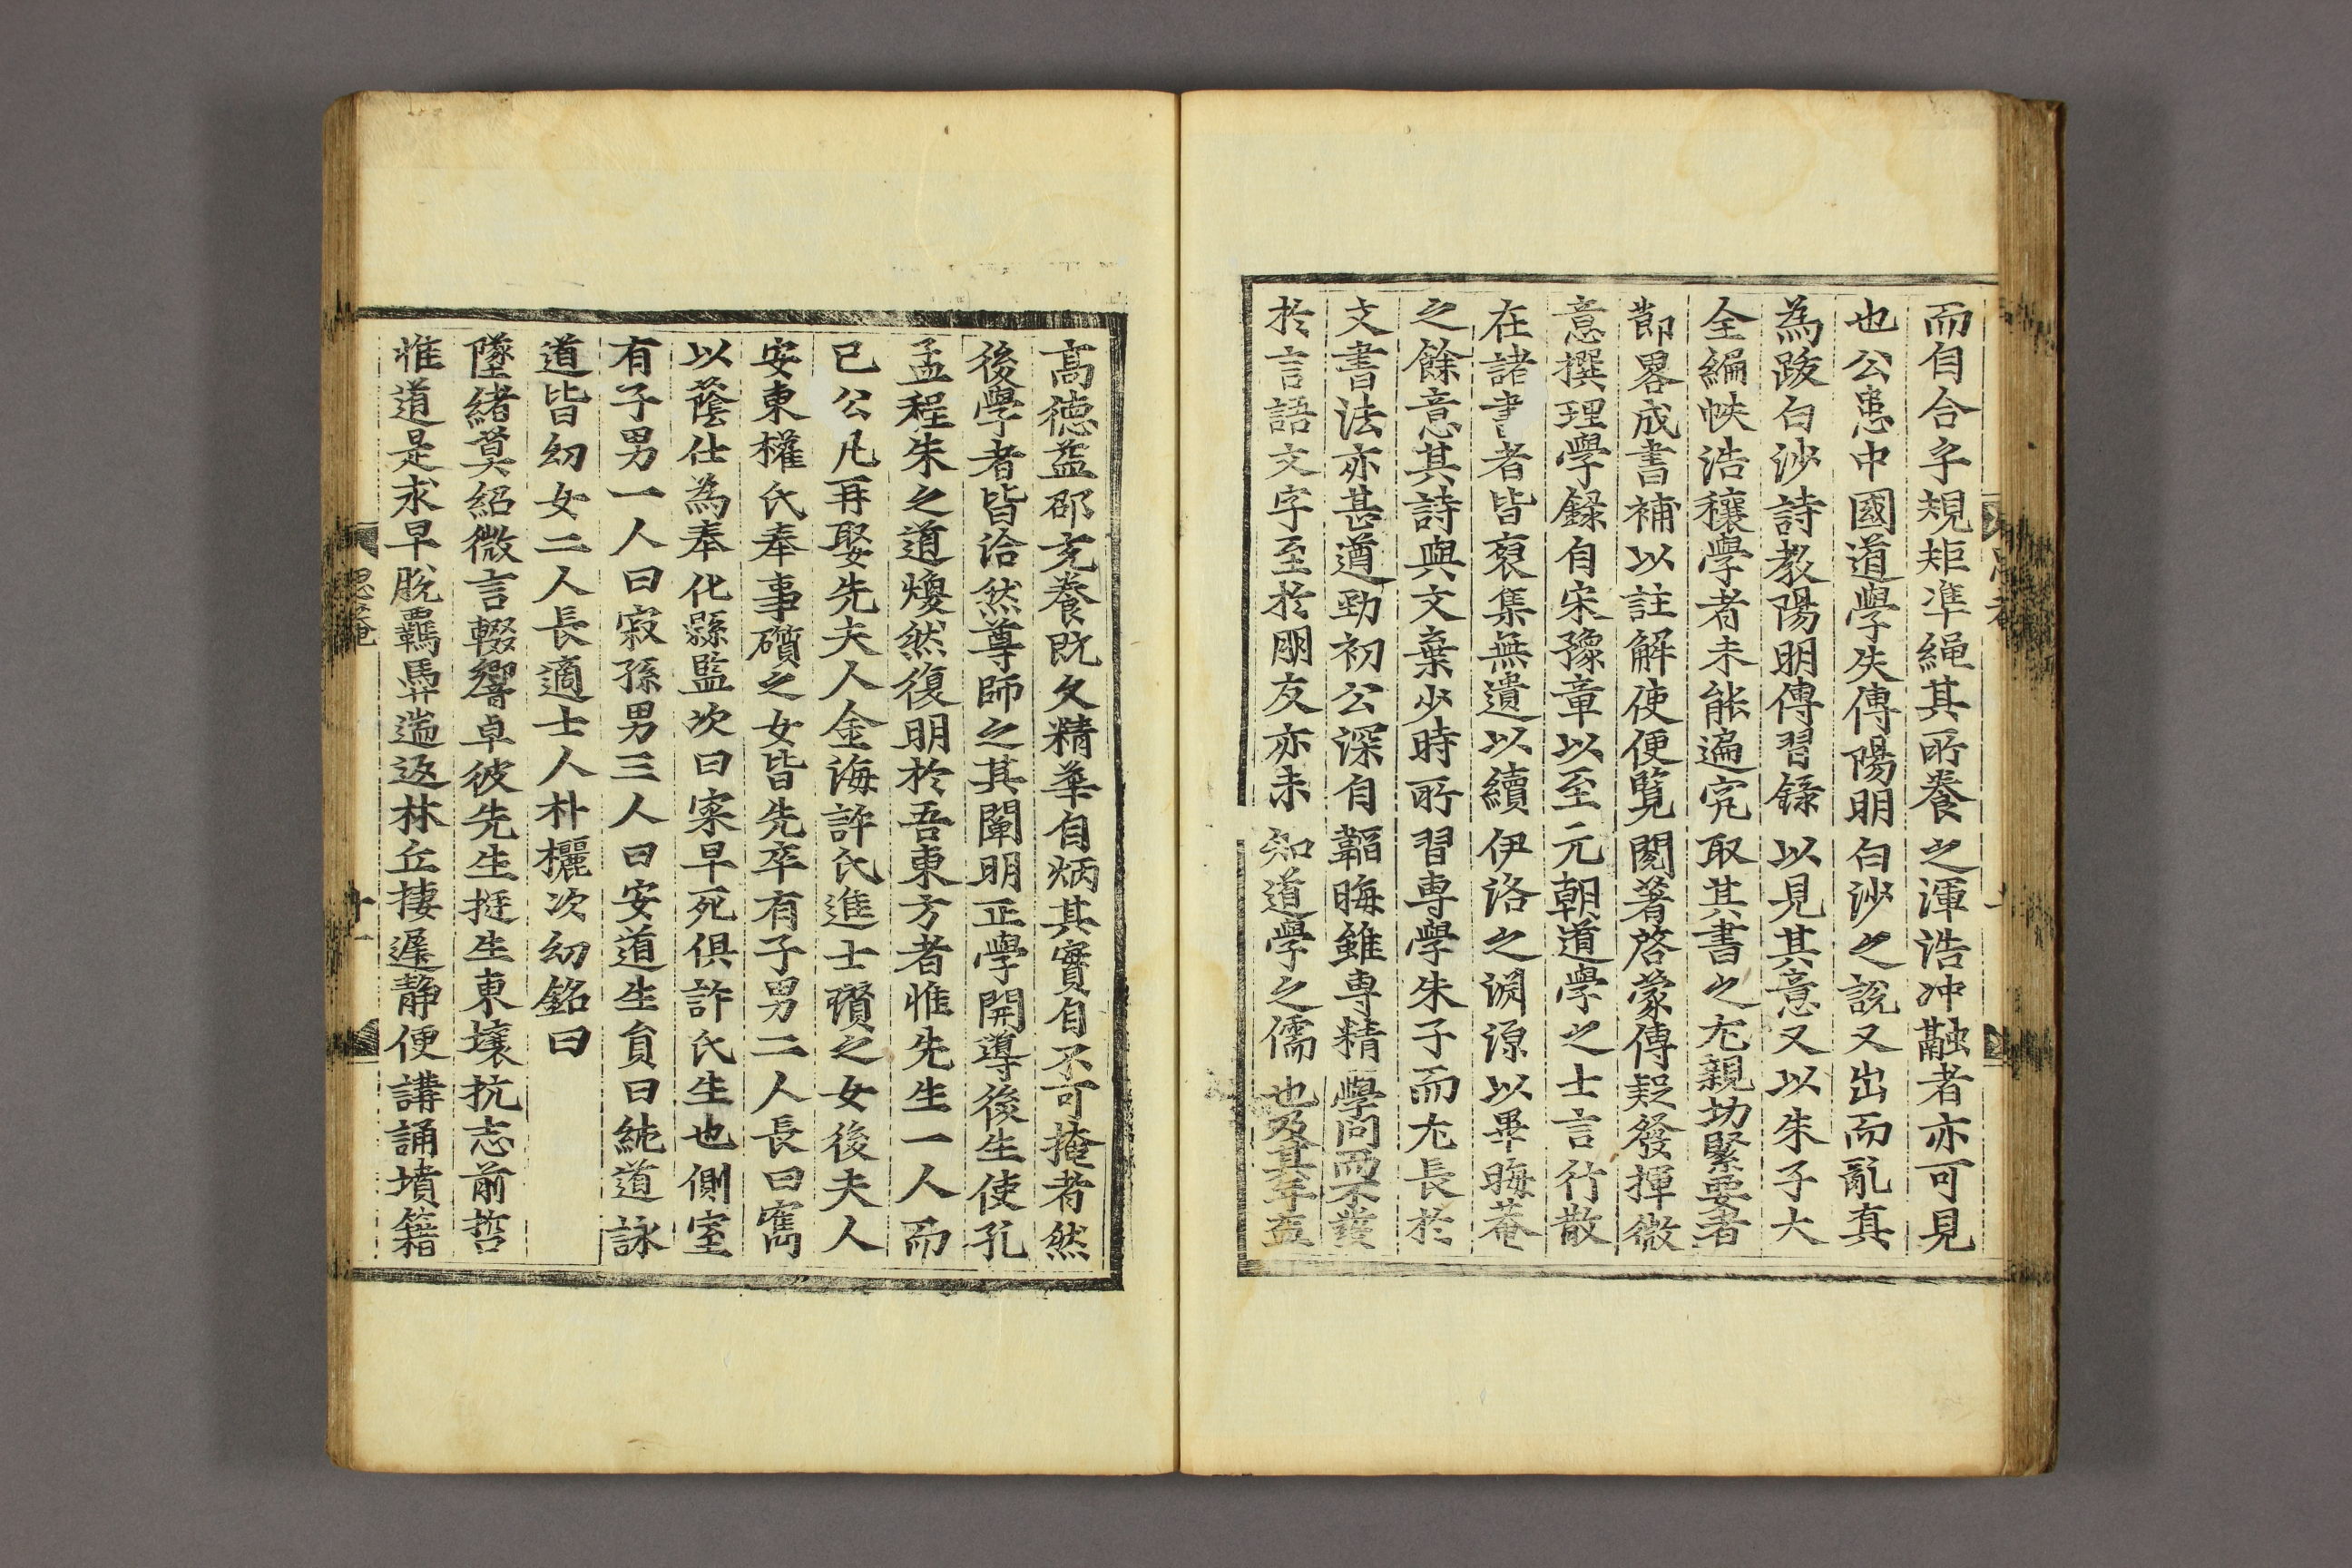 而自合乎規矩準繩其所養之渾浩冲融者亦可見
也公患中國道學失傳陽明白沙之說又出而亂真
為跋白沙詩教陽明傳習錄以見其意又以朱子大
全編帙浩穰學者未能遍究取其書之尤親切緊要者
節畧成書補以註解使便覽閱著啓蒙傳疑發揮微
意撰理學錄自宋豫章以至元朝道學之士言行散
在諸書者皆裒集無遺以續伊洛之淵源以畢晦菴
之餘意其詩與文棄少時所習專學朱子而尤長於
文書法亦甚遒勁初公深自韜晦雖專精學問而不發
於言語文字至於朋友亦未知道學之儒也及其年益
高德益邵充養既久精華自炳其實有不可掩者然
後學者皆洽然尊師之其闡明正學開導後生使孔
孟程朱之道煥然復明於吾東方者惟先生一人而
已公凡再娶先夫人金海許氏進士瓚之女後夫人
安東權氏奉事礩之女皆先卒有子男二人長曰寯
以蔭仕為奉化縣監次曰寀早死俱許氏生也側室
有子男一人曰寂孫男三人曰安道生員曰純道詠
道皆幼女二人長適士人朴欐次幼銘曰
墬緒莫紹微言輟響卓彼先生挺生東壤抗志前哲
惟道是求早脫羈馽遄返林丘棲遲靜便講誦墳籍
思菴
十一